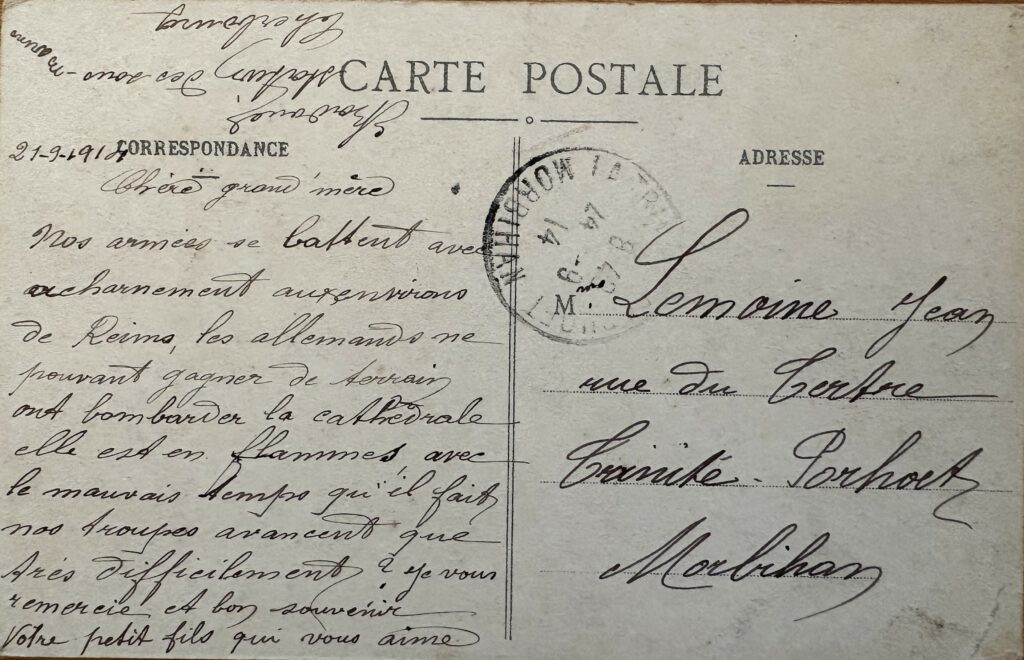 CARTE POSTALE
CORRESPONDANCE
ADRESSE
21-9-1914
Chère grand'mère
Nos armées se battent avec
acharnement aux environs
de Reims, les allemands ne
pouvant gagner de terrain
ont bombarder la cathédrale
elle est en flammes avec
le mauvais temps qu'il fait
nos troupes avancent que
très difficilement ? Je vous
remercie et bon souvenir
Votre petit fils qui vous aime
station des sous-marins
Cherbourg
MORBIHAN
24 -9
14
Mme Lemoine Jean
rue du Tertre
Trinité-Porhoët
Morbihan